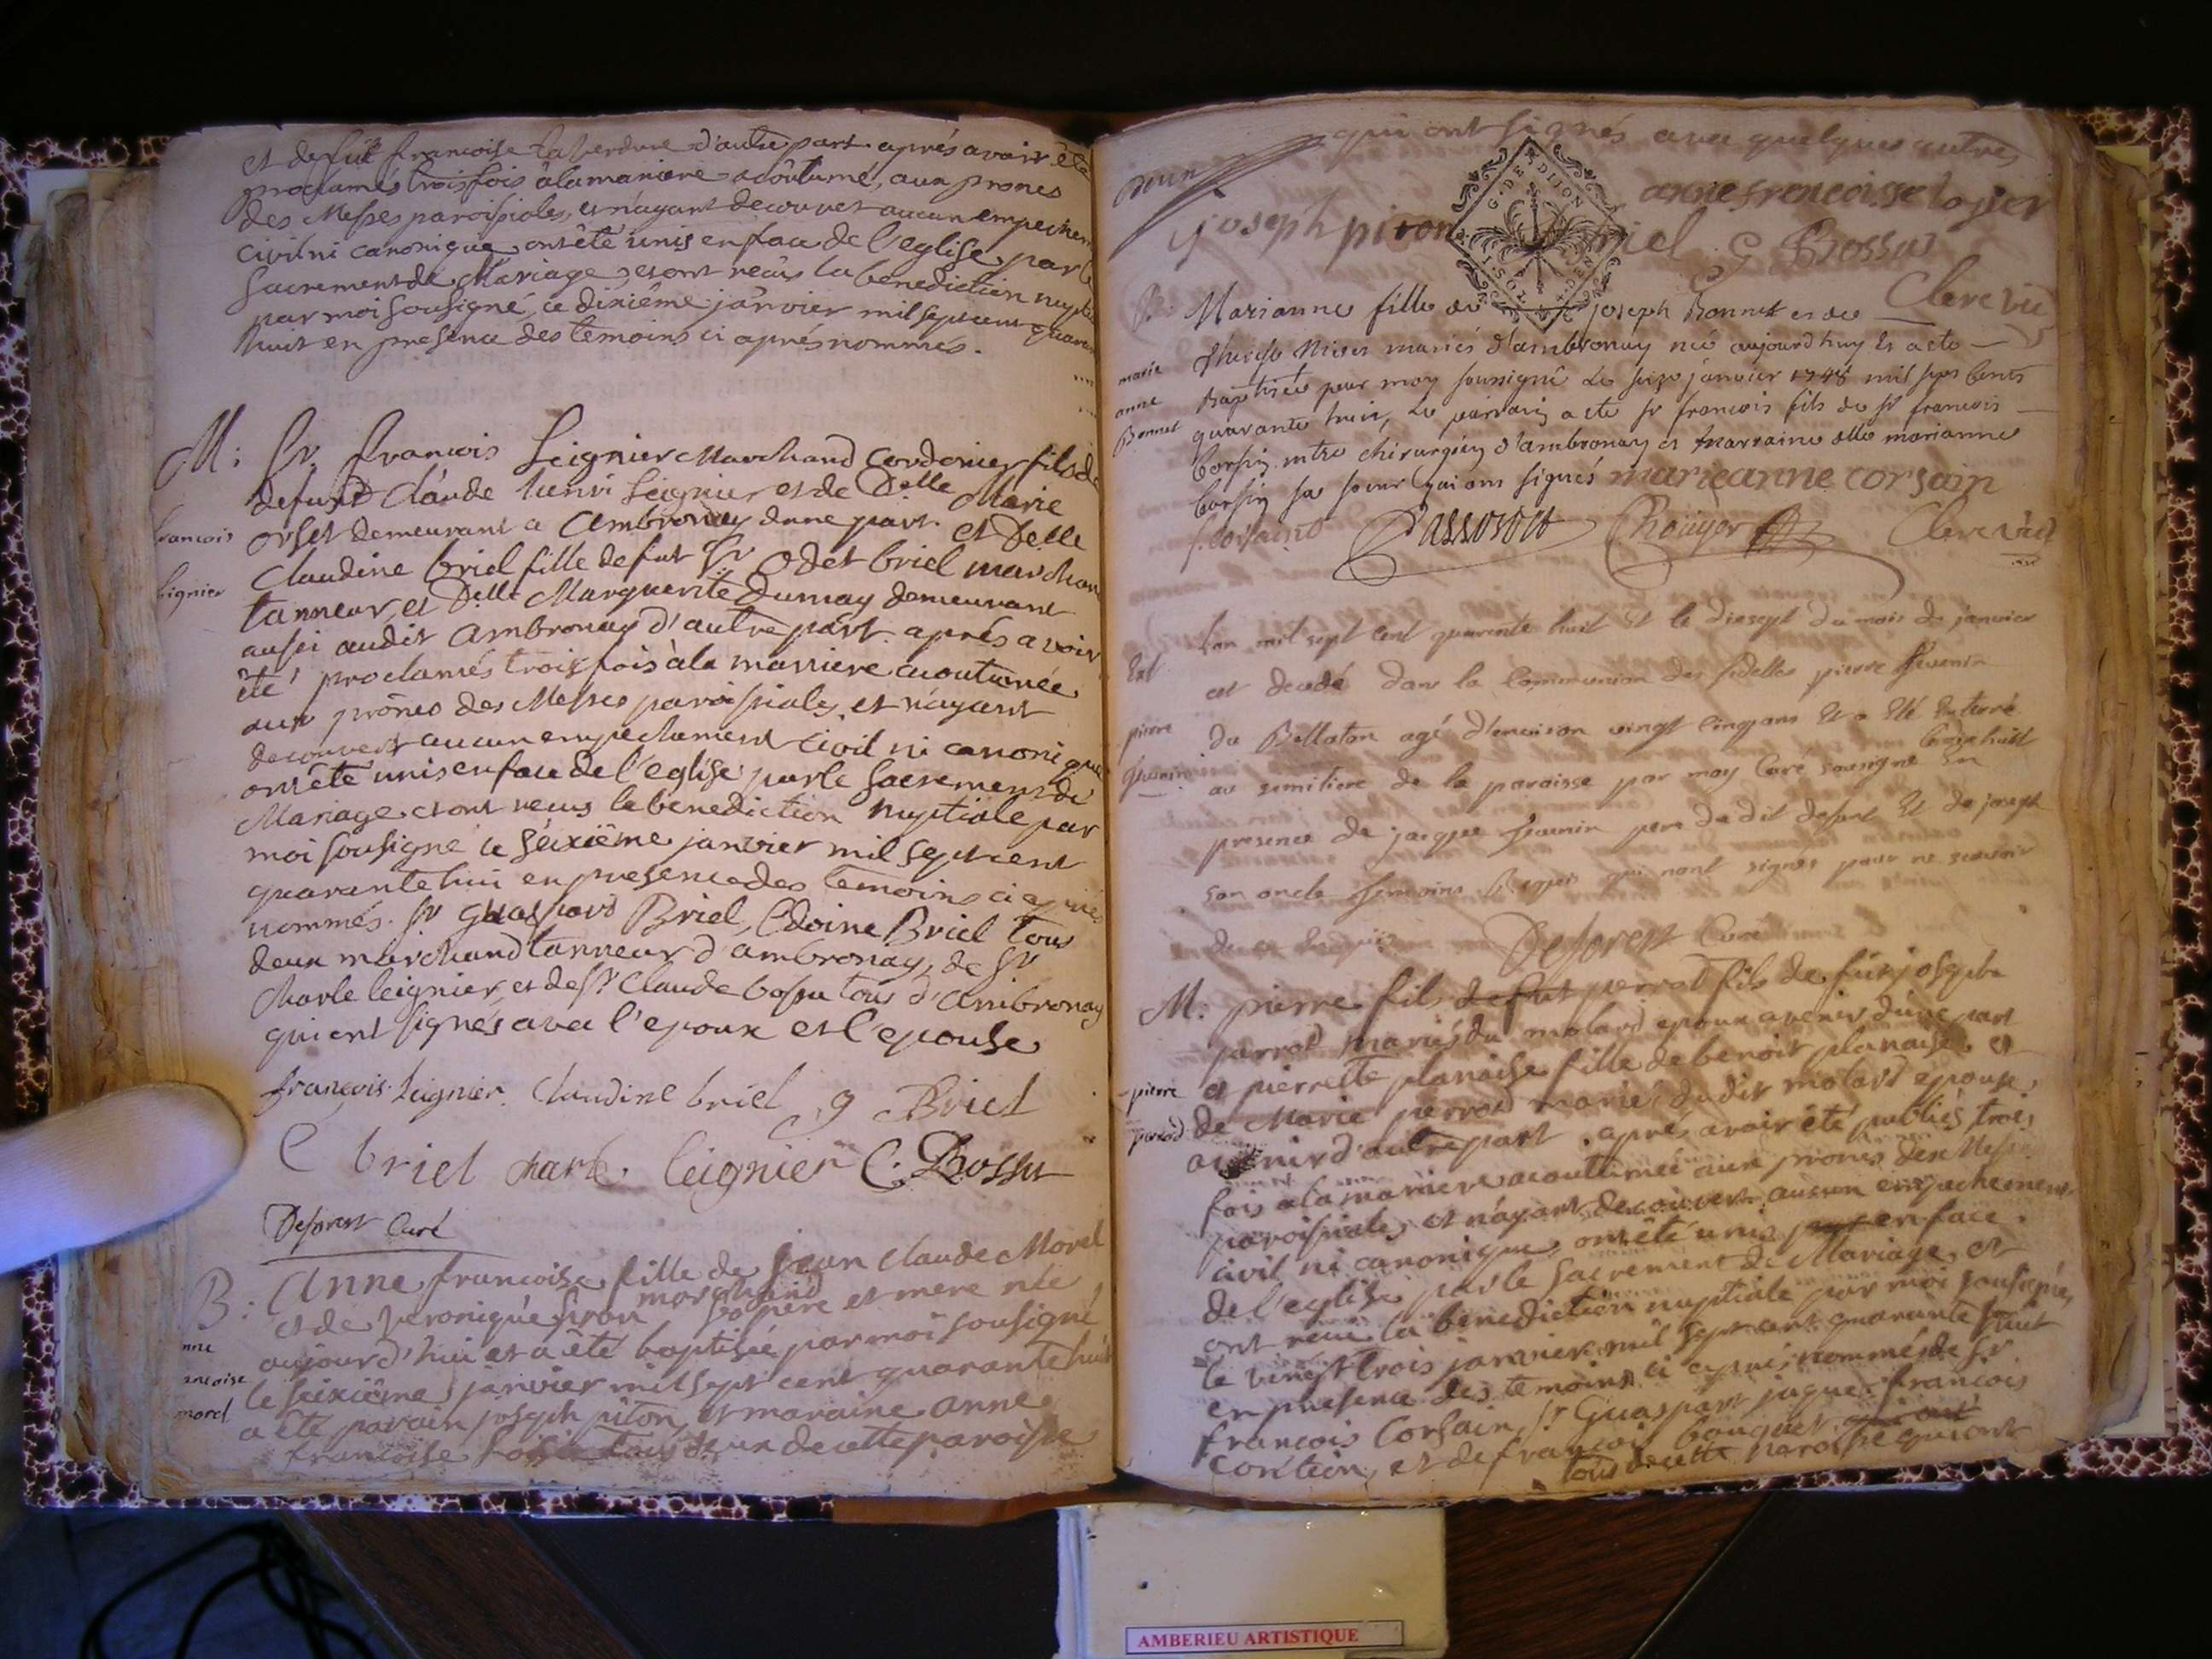 et de fut francoise laverdure d'autre part aprés avoir êté
proclamés trois fois àlamaniere acoûtumé, aux prones
des Messes paroissiales, et n'ayant decouvert aucun empechem
civil ni canonique ont êté unis en face de l'eglise par le
Sacrement de Mariage et ont recûs la benediction nuptia
par moi sousigné, ce dixiême janvier mil septcent quaran
huit en presence des temoins ci aprés nommés.
M: Sr. francois Leignier Marchand Cordonier fils de
francois
Leignier
defunt Claude henri Leignier et de Delle Marie
orset demeurant a Ambronay dune part. et Delle
Claudine briel fille de fut Sr. Odet briel marchan
tanneur, et Delle Marguerite Dumay demeurant
aussi audit Ambronay d'autre part. aprés avoir
êté proclamés trois fois à la maniere acoutumée
aux prônes des Messes paroissiales, et n'ayant
decouvert aucun empechement civil ni canonique
ont êté unis en face de l'eglise par le Sacrement de
Mariage et ont recus la bénediction nuptiale par
moi sousigné ce seixiême janvier mil sept cent
quarante huit en presence des temoins ci aprés
nommés. Sr Briel, Briel tous
deux marchand tanneur d'ambronay, de Sr
Charle leignier et de Sr. Claude bossu tous d'Ambronay
qui ont signés avec l'epoux et l'epouse
françois leignier Claudine briel g Briel
C briel charle leignier C. Bossu
Deforest Curé
B: Anne francoise fille de Jean Claude Morel
et de veronique piron marchand ses père et mere née
anne
ancoise
morel
aujourd'hui et a êté baptisée par moi sousigné
le seixiême janvier mil sept cent quarante huit
a êté parain joseph piton, et maraine anne
francoise tous deux de cette paroisse
qui ont signés avec quelques autres
anne frencoisse logier
joseph piron riel G Bossus
G. DE DIJON
Clerc vic
B: Marianne fille de joseph Bonnet et de
marie
anne
Bonnet
therese mariés d'ambronay née aujourdhuy et a ete
Baptisée par moy soussigné Le seize janvier 1748 mil sept Cents
quarante huit, Le parrain a ete Sr francois fils de Sr francois
Corsin mtre chirurgien d'ambronay et Marraine dlle marianne
Corsin sa soeur qui ont signés marieanne corsain
f. Corsaint Clerc vic
Lan mil sept cent quarante huit Et le diesept du mois de janvier
Ent
pierre
est decedé dans la Communion des fidelles pierre
du Bellaton agé d'environ vingt cinq ans Et a Eté Enterré
au semitiere de la paroisse par moy Curé sousigné En
presence de jacque pere du dit defunt Et de joseph
son oncle temoins Requis qui nont signés pour ne scavoir
Deforest Curé
M: pierre fils defut perrod fils de fut joseph
pierre
perrod
perrod mariés du molard epoux avenir dune part
et pierrette planaise fille de benoit planaise et
de Marie perrod mariés dudit molard epouse
avenir d'autre part. aprés avoir êté publiés trois
fois àla maniere acoutumée aux prones des Messes
paroissiales, et n'ayant decouvert aucun empechement
civil ni canonique, ont êté unis en face
de l'eglise par le Sacrement de Mariage, et
ont recu la benediction nuptiale par moi sousigné,
le vingt trois janvier mil sept cent quarante huit
en presence des temoins ci aprés nommés de Sr
francois Corsain, Sr Guaspart jaque francois
et de francois bouquet qui ont
tous de cette paroisse qui ont
AMBERIEU ARTISTIQUE